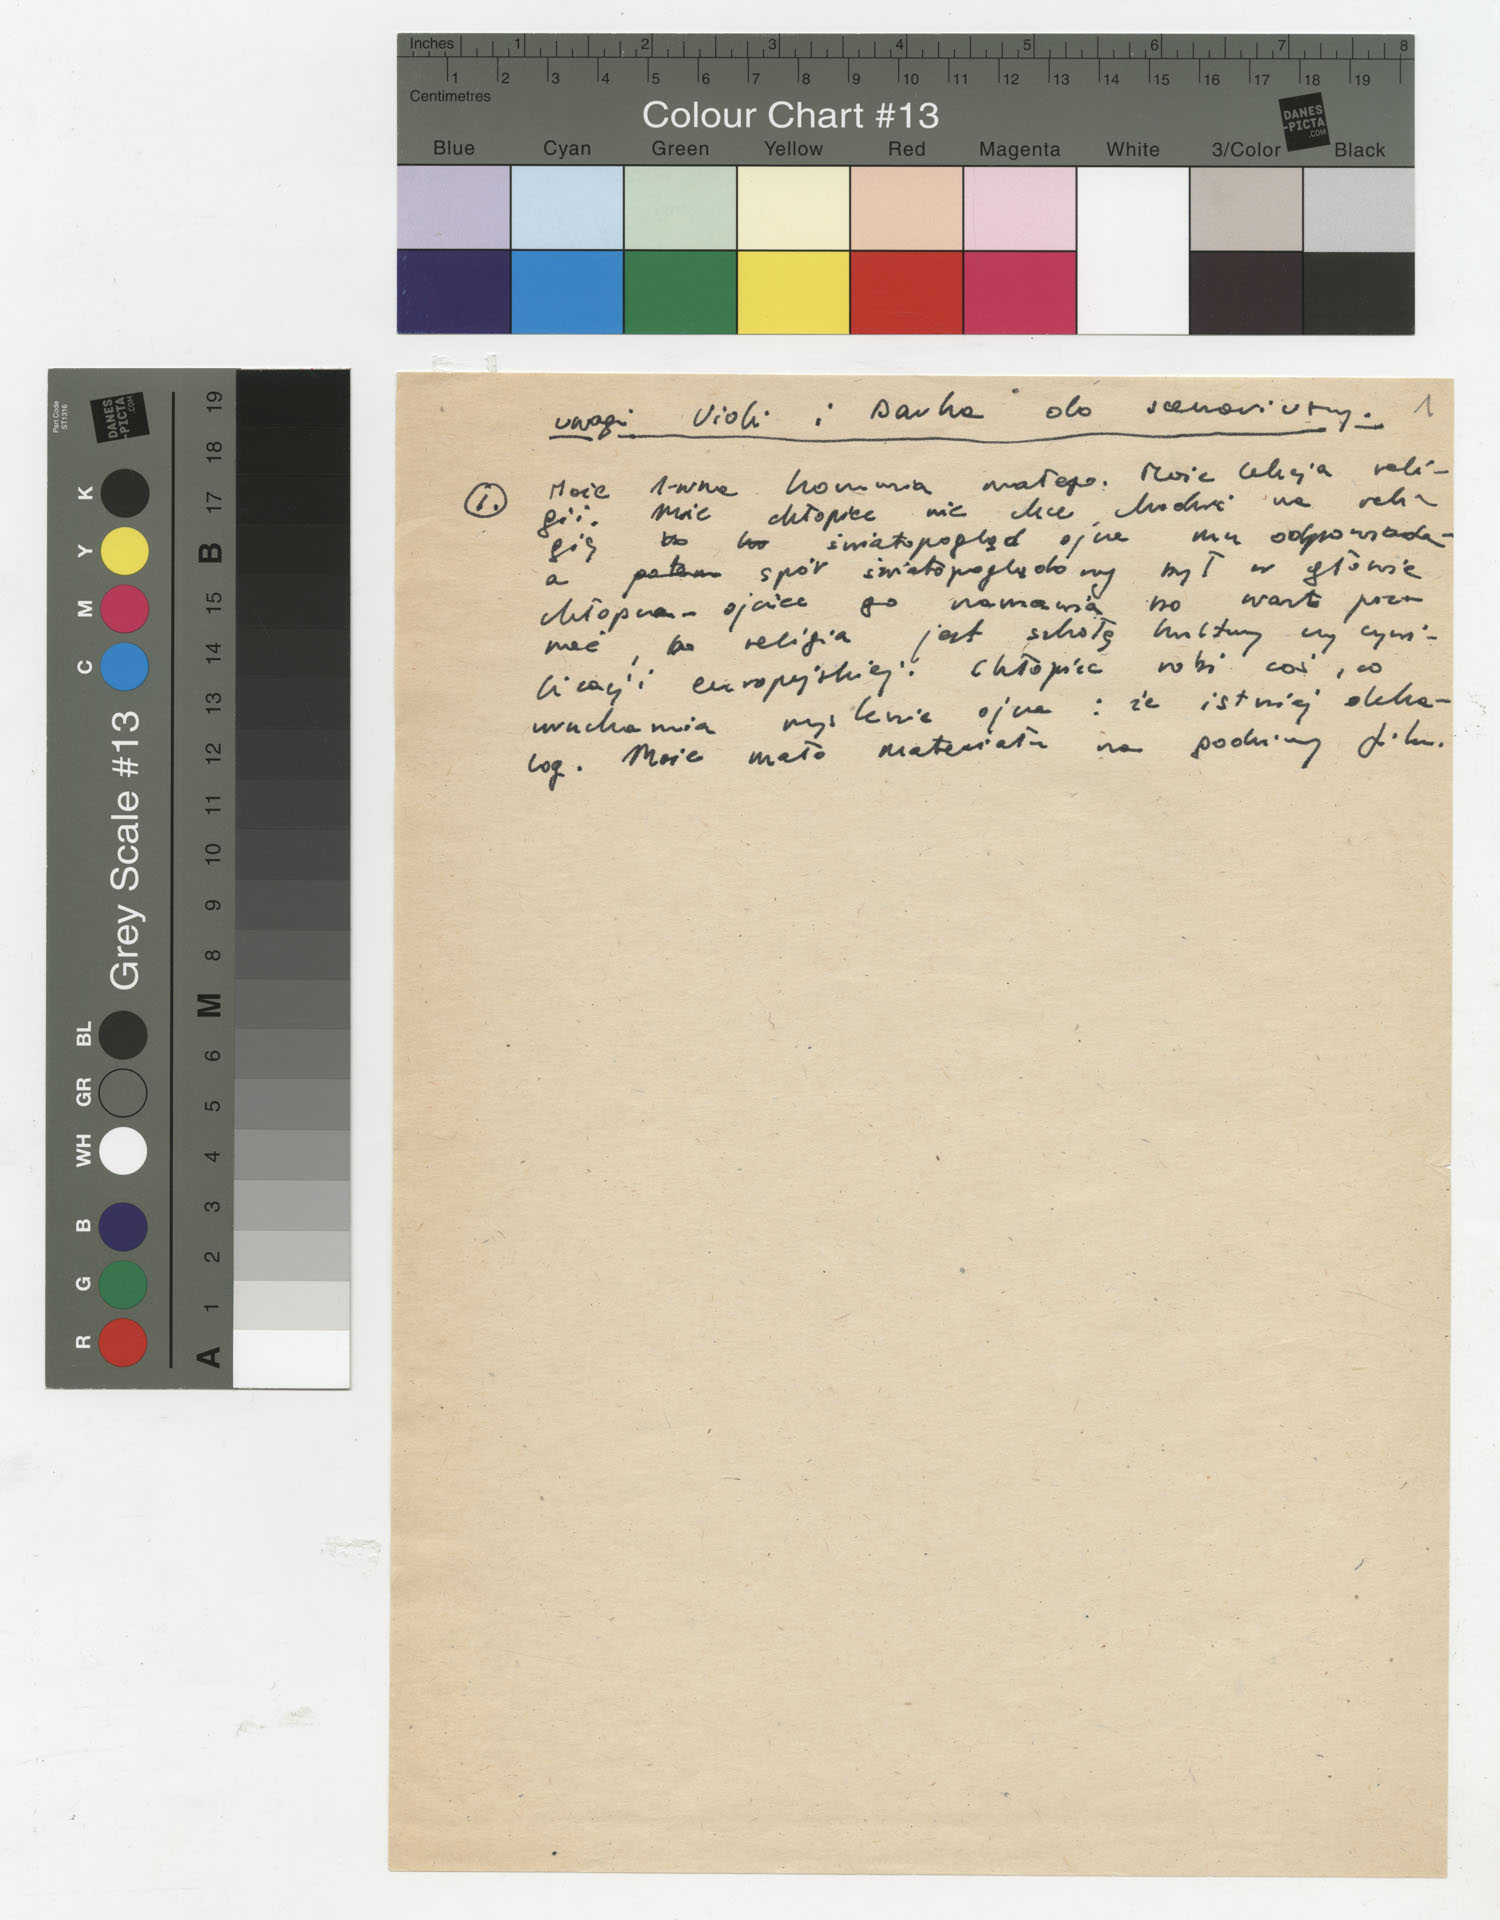 Inches 1 2 3 4 5 6 7 8
1 2 3 4 5 6 7 8 9 10 11 12 13 14 15 16 17 18 19
Centimetres
Colour Chart #13
DANES
-PICTA
.COM
Blue Cyan Green Yellow Red Magenta White 3/Color Black
Part Code
ST1316
DANES
-PICTA
.COM
Grey Scale #13
R G B WH GR BL C M Y K
A 1 2 3 4 5 6 M 8 9 10 11 12 13 14 15 B 17 18 19
uwagi Violi i Darka do scenariuszy. 1
1. Może 1-wsza komunia małego. Może lekcja reli-
gii. Może chłopiec nie chce chodzić na reli-
gię bo bo światopogląd ojca mu odpowiada-
a potem spór światopoglądowy był w głowie
chłopca - ojciec go namawia bo warto poz-
nać, bo religia jest szkołą kultury czy cywi-
lizacji europejskiej. Chłopiec robi coś, co
uruchamia myślenie ojca : że istniej deka-
log. Może mało materiału na godzinny film.